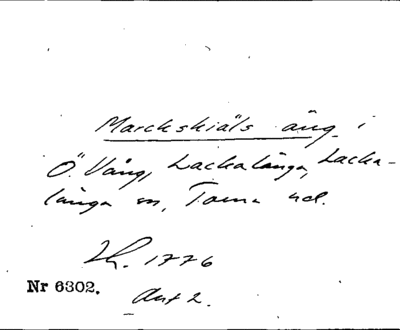 Marckskiäls äng i
Ö. Vång, Lackalänga, Lacka-
länga sn, Torna hd.
Lh. 1776
Nr 6302.
Akt 2.